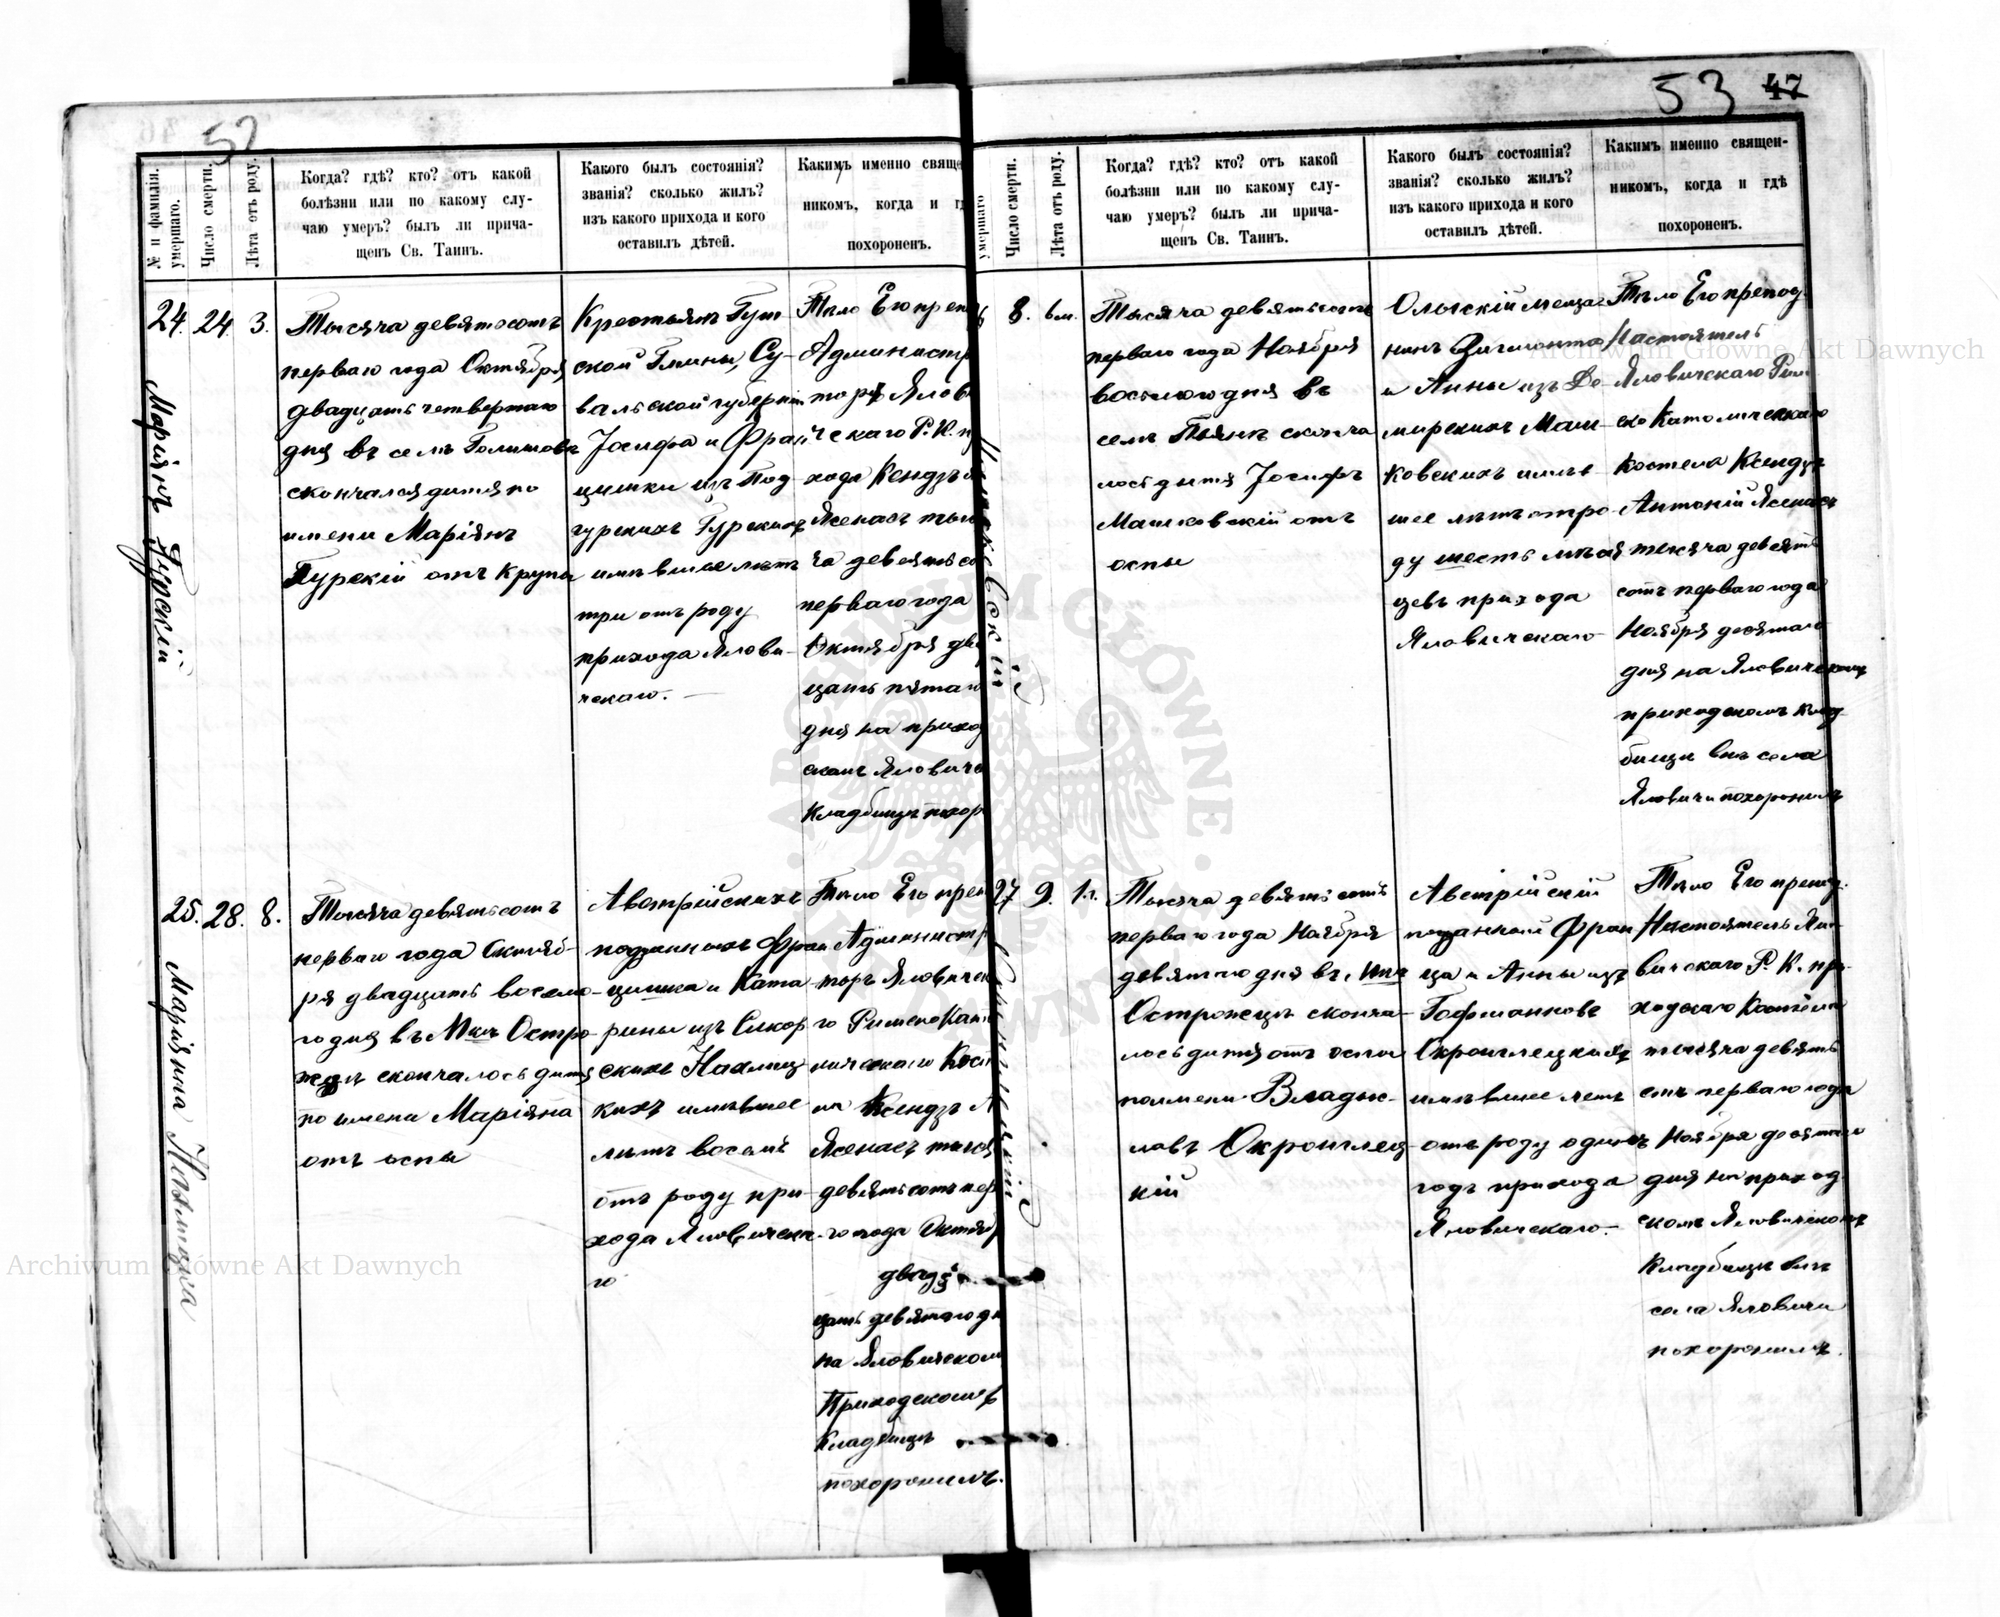 52
№ и фамилія умершаго.
Число смерти.
Лѣта отъ роду.
Когда? гдѣ? кто? отъ какой
болѣзни или по какому слу-
чаю умеръ? былъ ли прича-
щенъ Св. Таинъ.
Какого былъ состоянія?
званія? сколько жилъ?
изъ какого прихода и кого
оставилъ дѣтей.
Какимъ именно свяще
никомъ, когда и гд
похороненъ.
24.
Маріянъ Гурскій
24
3.
Тысяча девятьсотъ
перваго года Октября
двадцать четвертаго
дня въ селѣ
скончалось дитя по
имени Маріянъ
Гурскій отъ крупы
Крестьянъ
ской Гмины, Су-
вальской губерніи
Іосифа и Фран
цишки изъ Под
гурскихъ Гурскихъ
имѣвшее лѣтъ
три отъ роду
прихода Ялови-
чскаго.
Тѣло Его преп
Администр
торъ Ялов
чскаго Р. К. п
хода Ксендзъ
Ясенасъ тыс
ча девятьсо
перваго года
Октября два
цать пятаго
дня на приход
скомъ Яловичс
кладбищѣ похор
25.
Маріянна
28.
8.
Тысяча девятьсотъ
перваго года Октяб-
ря двадцать восьма-
го дня въ Мѣст. Остро
жцѣ скончалось дитя
по имени Маріяна
отъ оспы
Австрійскихъ
подданныхъ Фран
цишка и Ката
рины изъ Сикор
скихъ
кихъ имѣвшее
лѣтъ восемь
отъ роду при-
хода Яловичска-
го
Тѣло Его преп
Администр
торъ Яловичск
го Римско Кат
лическаго Кост
ла Ксендзъ А
Ясенасъ тысяч
девятьсотъ пер
го года Октябр
двад
цать девятаго дн
на Яловичском
Приходскомъ
Кладбищѣ
похоронилъ.
53 47
умершаго
Число смерти.
Лѣта отъ роду.
Когда? гдѣ? кто? отъ какой
болѣзни или по какому слу-
чаю умеръ? былъ ли прича-
щенъ Св. Таинъ.
Какого былъ состоянія?
званія? сколько жилъ?
изъ какого прихода и кого
оставилъ дѣтей.
Какимъ именно священ-
никомъ, когда и гдѣ
похороненъ.
8.
6 м.
Тысяча девятьсотъ
перваго года Ноября
восьмого дня въ
селѣ Пьянѣ сконча
лось дитя Іосифъ
Машковскій отъ
оспы
Олыскій меща-
нинъ Зигмонта
и Анны изъ До
мирскихъ Маш-
ковскихъ имѣв-
шее лѣтъ отро
ду шесть мѣся
цевъ прихода
Яловичскаго
Тѣло Его препод.
Настоятель
Яловичскаго Рим
ско Католическаго
Костела Ксендзъ
Антоній Ясенасъ
тысяча девять
сотъ перваго года
Ноября десятаго
дня на Яловичскомъ
приходскомъ клад-
бищѣ внѣ села
Яловичи похоронилъ
27
9.
1 г.
Тысяча девятьсотъ
перваго года Ноября
девятаго дня въ Мѣст
Острожецъ сконча-
лось дитя отъ оспы
по имени Владис-
лавъ Окронглец
кій
Австрійскій
подданный Фран
ца и Анны изъ
Гофманновъ
Окронглецкихъ
имѣвшее лѣтъ
отъ роду одинъ
годъ прихода
Яловичскаго.
Тѣло Его препод.
Настоятель Яло-
вичскаго Р. К. при-
ходскаго Костела
тысяча девять
сотъ перваго года
Ноября десятаго
дня на приход
скомъ Яловичскомъ
Кладбищѣ внѣ
села Яловичи
похоронилъ.
Archiwum Główne Akt Dawnych
Archiwum Główne Akt Dawnych
ARCHIWUM GŁÓWNE